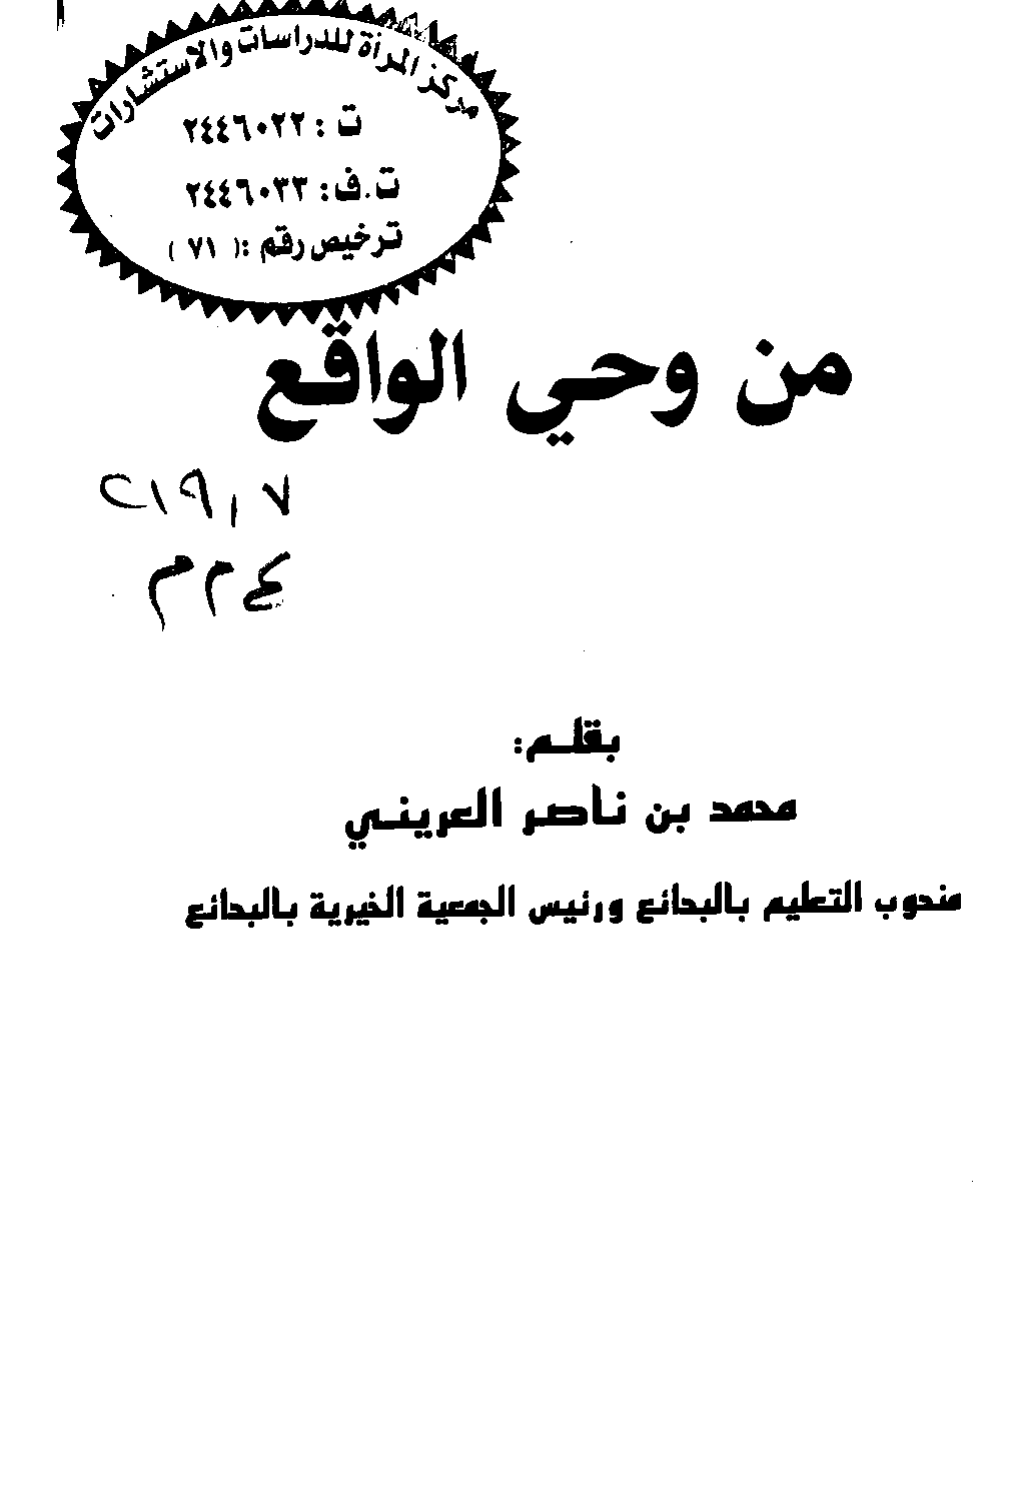 مركز المرأة للدراسات والاستشارات
ت : ٢٤٤٦٠٢٢
ت.ف: ٢٤٤٦٠٣٣
ترخيص رقم :( ٧١ )
من وحي الواقع
بقلم:
محمد بن ناصر العريني
مندوب التعليم بالبدائع ورئيس الجمعية الخيرية بالبدائع